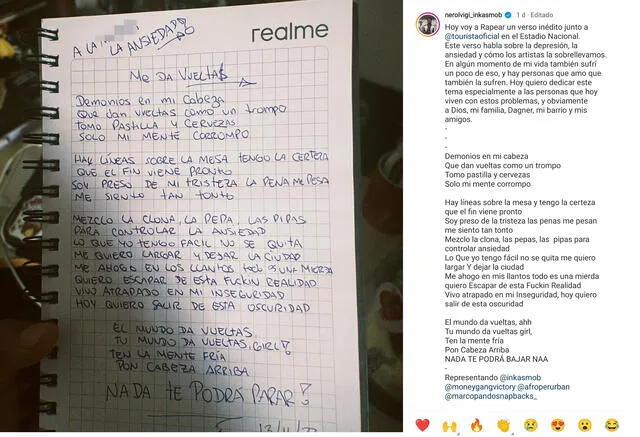 A LA
"LA ANSIEDAD"
realme
ME DA VUELTAS
DEMONIOS EN MI CABEZA
QUE DAN VUELTAS COMO UN TROMPO
TOMO PASTILLA Y CERVEZAS
SOLO MI MENTE CORROMPO
HAY LÍNEAS SOBRE LA MESA TENGO LA CERTEZA
QUE EL FIN VIENE PRONTO
SOY PRESO DE MI TRISTEZA LA PENA ME PESA
ME SIENTO TAN TONTO
MEZCLO LA CLONA, LA PEPA, LAS PIPAS
PARA CONTROLAR LA ANSIEDAD
LO QUE YO TENGO FACIL NO SE QUITA
ME QUIERO LARGAR Y DEJAR LA CIUDAD
ME AHOGO EN LOS LLANTOS TODO ES UNA MIERDA
QUIERO ESCAPAR DE ESTA FUCKIN REALIDAD
VIVO ATRAPADO EN MI INSEGURIDAD
HOY QUIERO SALIR DE ESTA OSCURIDAD
EL MUNDO DA VUELTAS.
TU MUNDO DA VUELTAS, GIRL!
TEN LA MENTE FRÍA
PON CABEZA ARRIBA.
NADA TE PODRÁ PARAR!
nerolvigi_inkasmob 1 d · Editado
Hoy voy a Rapear un verso inédito junto a
@touristaoficial en el Estadio Nacional.
Este verso habla sobre la depresión, la
ansiedad y cómo los artistas la sobrellevamos.
En algún momento de mi vida también sufrí
un poco de eso, y hay personas que amo que
también la sufren. Hoy quiero dedicar este
tema especialmente a las personas que hoy
viven con estos problemas, y obviamente
a Dios, mi familia, Dagner, mi barrio y mis
amigos.
-
-
-
Demonios en mi cabeza
Que dan vueltas como un trompo
Tomo pastilla y cervezas
Solo mi mente corrompo
Hay líneas sobre la mesa y tengo la certeza
que el fin viene pronto
Soy preso de la tristeza las penas me pesan
me siento tan tonto
Mezclo la clona, las pepas, las pipas para
controlar ansiedad
Lo Que yo tengo fácil no se quita me quiero
largar Y dejar la ciudad
Me ahogo en mis llantos todo es una mierda
quiero Escapar de esta Fuckin Realidad
Vivo atrapado en mi Inseguridad, hoy quiero
salir de esta oscuridad
El mundo da vueltas, ahh
Tu mundo da vueltas girl,
Ten la mente fría
Pon Cabeza Arriba
NADA TE PODRÁ BAJAR NAA
-
Representando @inkasmob
@moneygangvictory @afroperurban @
@marcopandosnapbacks_